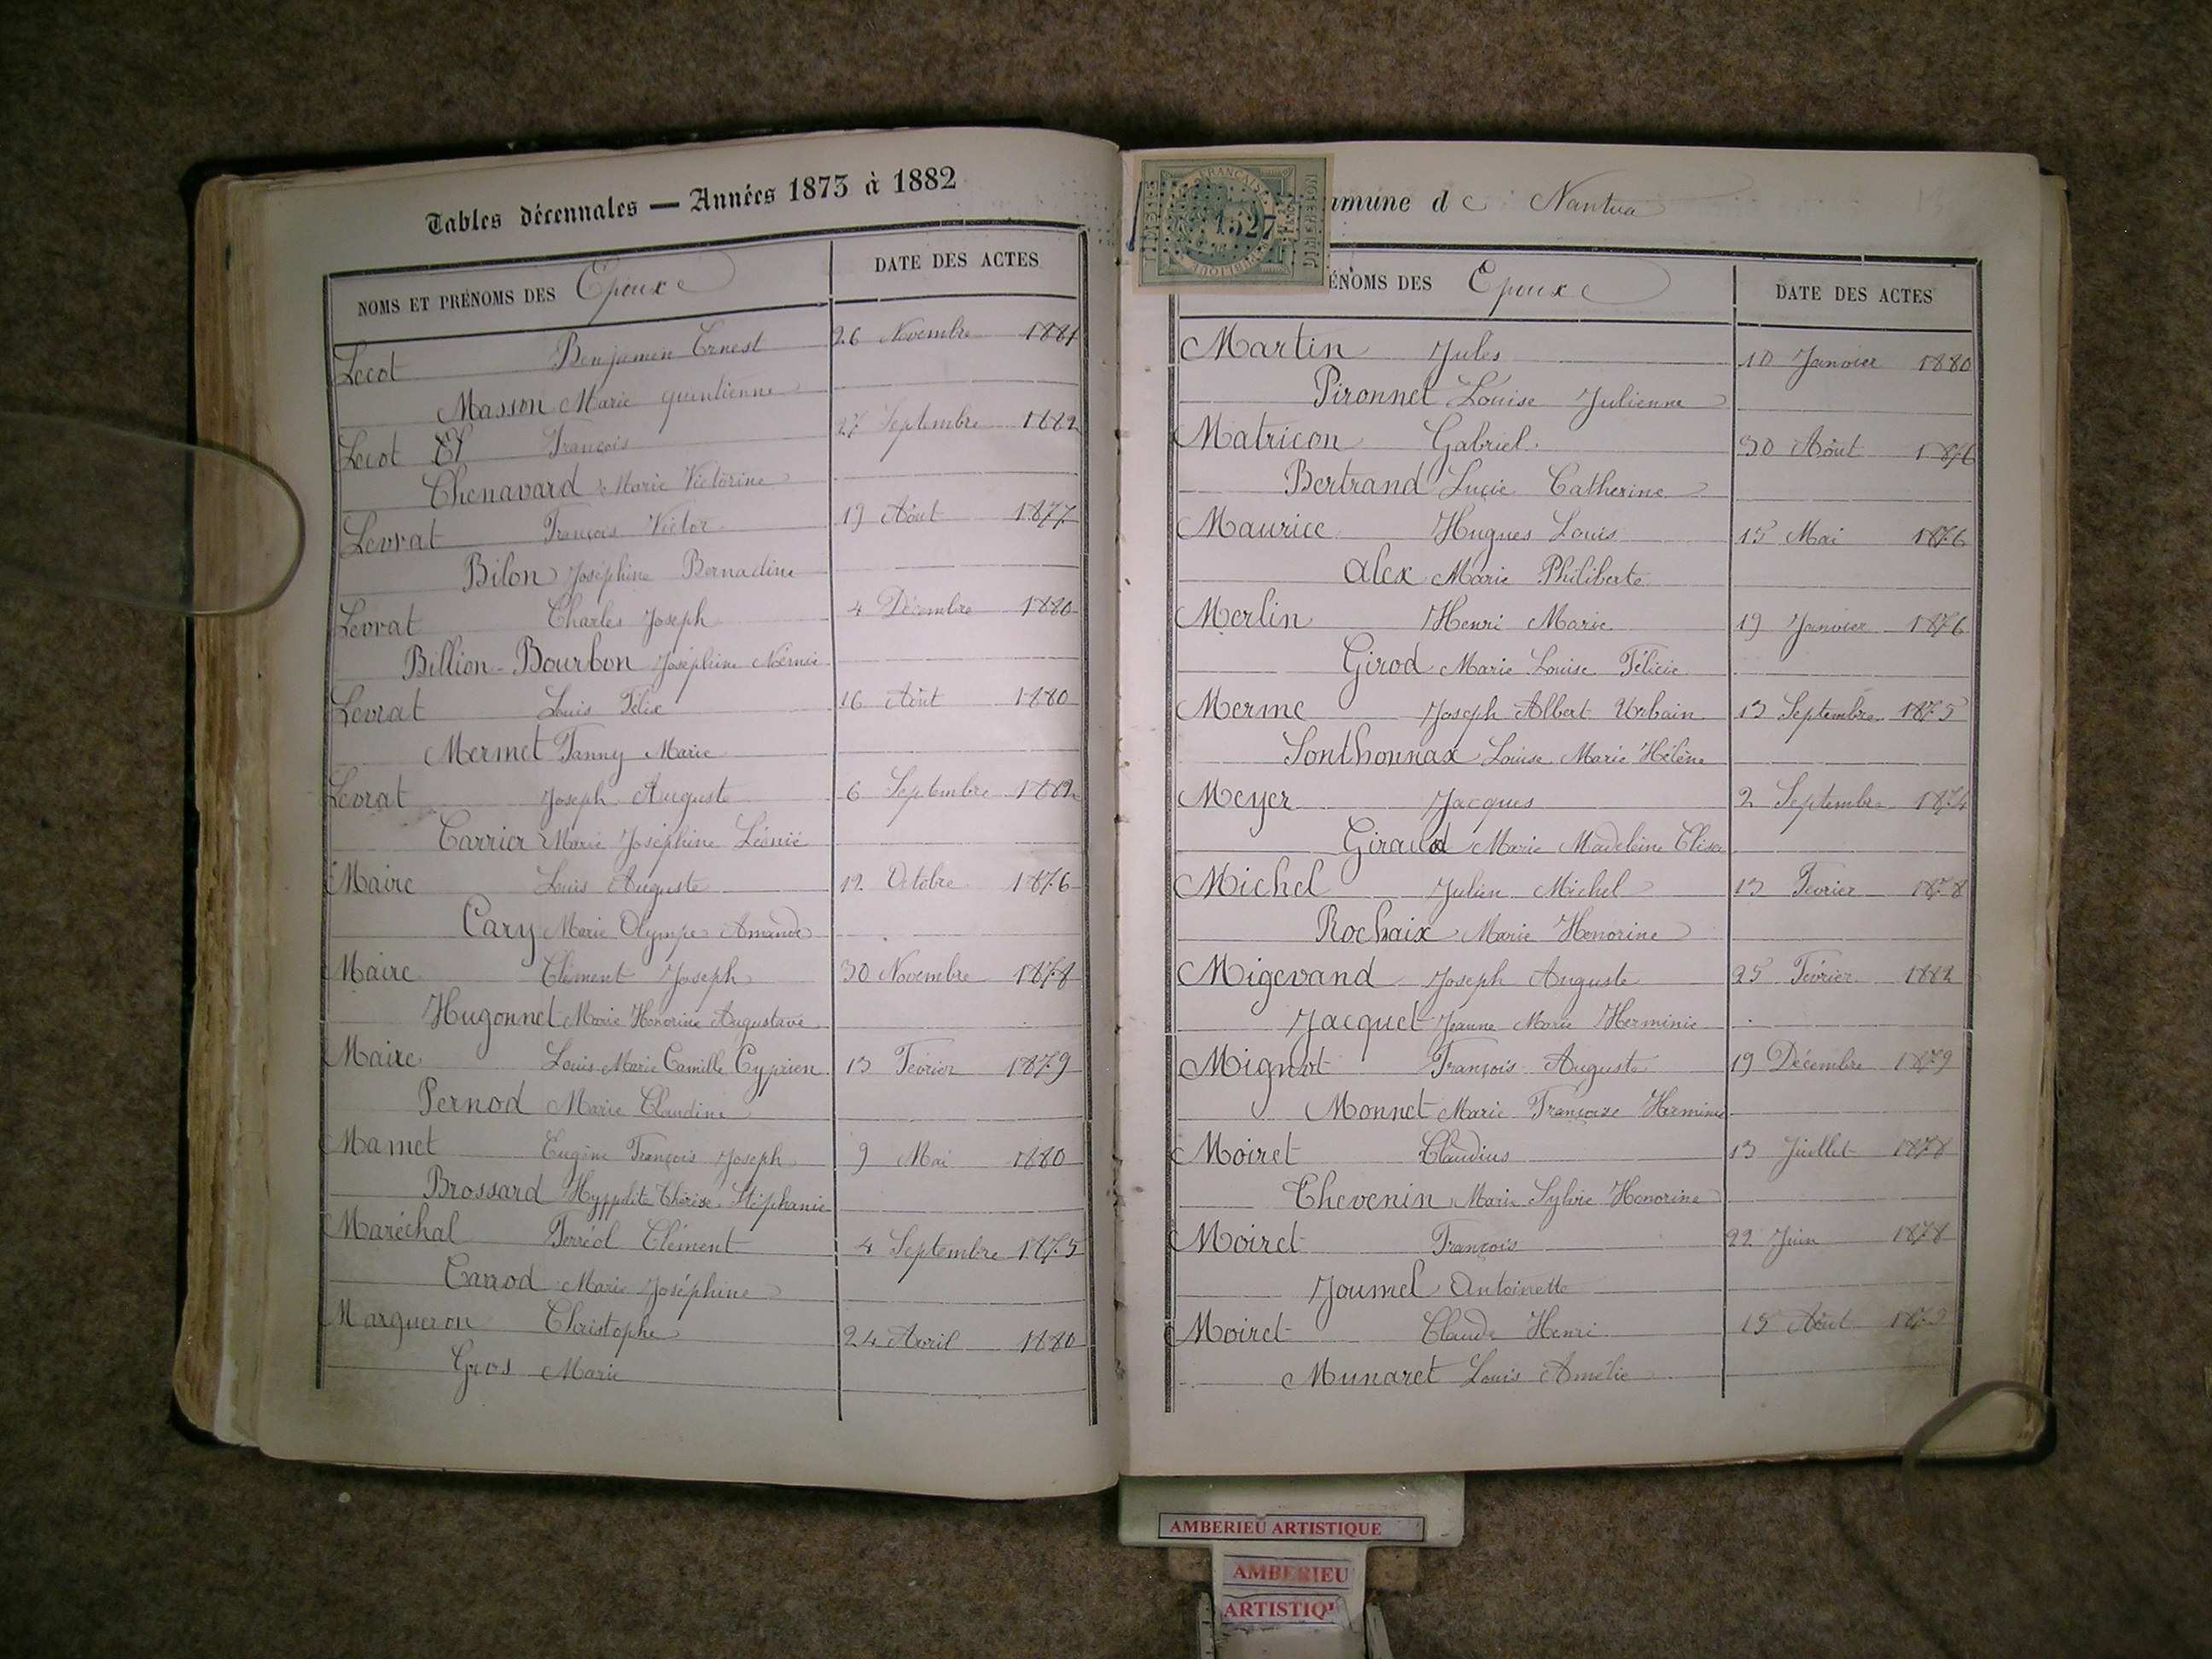 Tables décennales — Années 1873 à 1882
NOMS ET PRÉNOMS DES Epoux DATE DES ACTES
Lecot Benjamin Ernest 26 Novembre 1881
Masson Marie Quintienne
Lecot François 27 Septembre 1882
Chenavard Marie Victorine
Levrat François Victor 19 Août 1877
Bilon Joséphine Bernadine
Levrat Charles Joseph 4 Décembre 1880
Billion-Bourbon Joséphine Noémie
Levrat Louis Félix 16 Août 1880
Mermet Fanny Marie
Levrat Joseph Auguste 6 Septembre 1882
Carrier Marie Joséphine Léonie
Maire Louis Auguste 12 Octobre 1876
Cary Marie Olympe Amande
Maire Clément Joseph 30 Novembre 1878
Hugonnet Marie Honorine Augustave
Maire Louis Marie Camille Cyprien 13 Février 1879
Pernod Marie Claudine
Mamet Eugène François Joseph 9 Mai 1880
Brossard Hyppolite Thérèse Stéphanie
Maréchal Ferréol Clément 4 Septembre 1875
Carrod Marie Joséphine
Margueron Christophe 24 Avril 1880
Gros Marie
mmune de Nantua
ÉNOMS DES Epoux DATE DES ACTES
Martin Jules 10 Janvier 1880
Pironnet Louise Julienne
Matricon Gabriel 30 Août 1876
Bertrand Lucie Catherine
Maurice Hugues Louis 15 Mai 1876
Alex Marie Philiberte
Merlin Henri Marie 19 Janvier 1876
Girod Marie Louise Félicie
Merme Joseph Albert Urbain 13 Septembre 1875
Sonthonnax Louise Marie Hélène
Meyer Jacques 2 Septembre 1874
Giraud Marie Madeleine Elisa
Michel Julien Michel 13 Février 1878
Rochaix Marie Honorine
Migevand Joseph Auguste 25 Février 1882
Jacquet Jeanne Marie Herminie
Mignot François Auguste 19 Décembre 1879
Monnet Marie Françoise Herminie
Moiret Claudius 13 Juillet 1878
Thevenin Marie Sylvie Honorine
Moiret François 22 Juin 1878
Joumel Antoinette
Moiret Claude Henri 15 Août
Munaret Louis Amélie
AMBERIEU ARTISTIQUE
AMBERIEU
ARTISTIQU